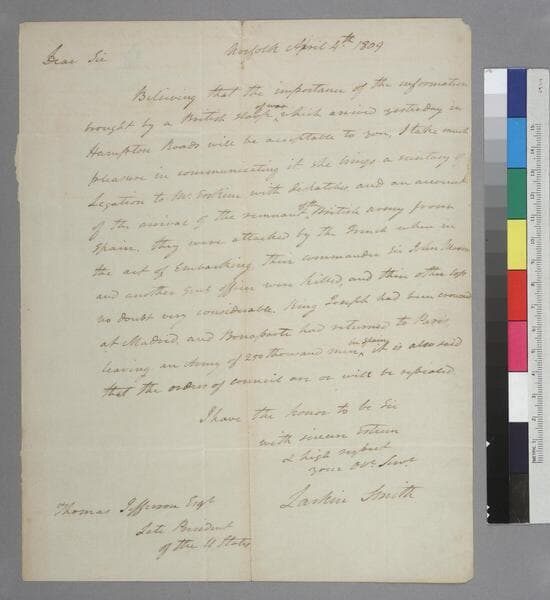 Norfolk April 4th 1809
Dear Sir
Believing that the importance of the information
brought by a British sloop of war, which arrived yesterday in
Hampton Roads will be acceptable to you, I take much
pleasure in communicating it. She brings a secretary of
Legation to Mr. Erskine with despatches, and an account
of the arrival of the remnant of the British army from
Spain. they were attacked by the French when in
the act of Embarking. Their commander Sir John Moore
and another Genl officer were killed, and their other loss
no doubt very considerable. King Joseph had been crowned
at Madrid, and Bonaparte had returned to Paris
leaving an Army of 250 thousand men in Spain, it is also said
that the orders of council are or will be repealed.
I have the honor to be Sir
with sincere Esteem
& high respect
your Obt. Servt.
Larkin Smith
Thomas Jefferson Esqr
Late President
of the U States